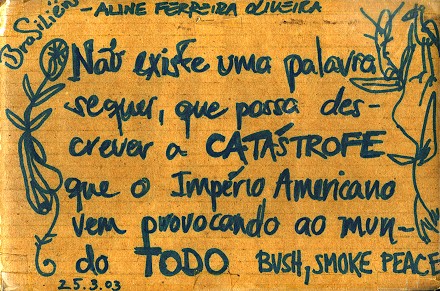 Brasilien
- ALINE FERREIRA OLIVEIRA
Não existe uma palavra
sequer, que possa des-
crever a CATÁSTROFE
que o Império Americano
vem provocando ao mun-
do TODO BUSH, SMOKE PEACE
25.3.03